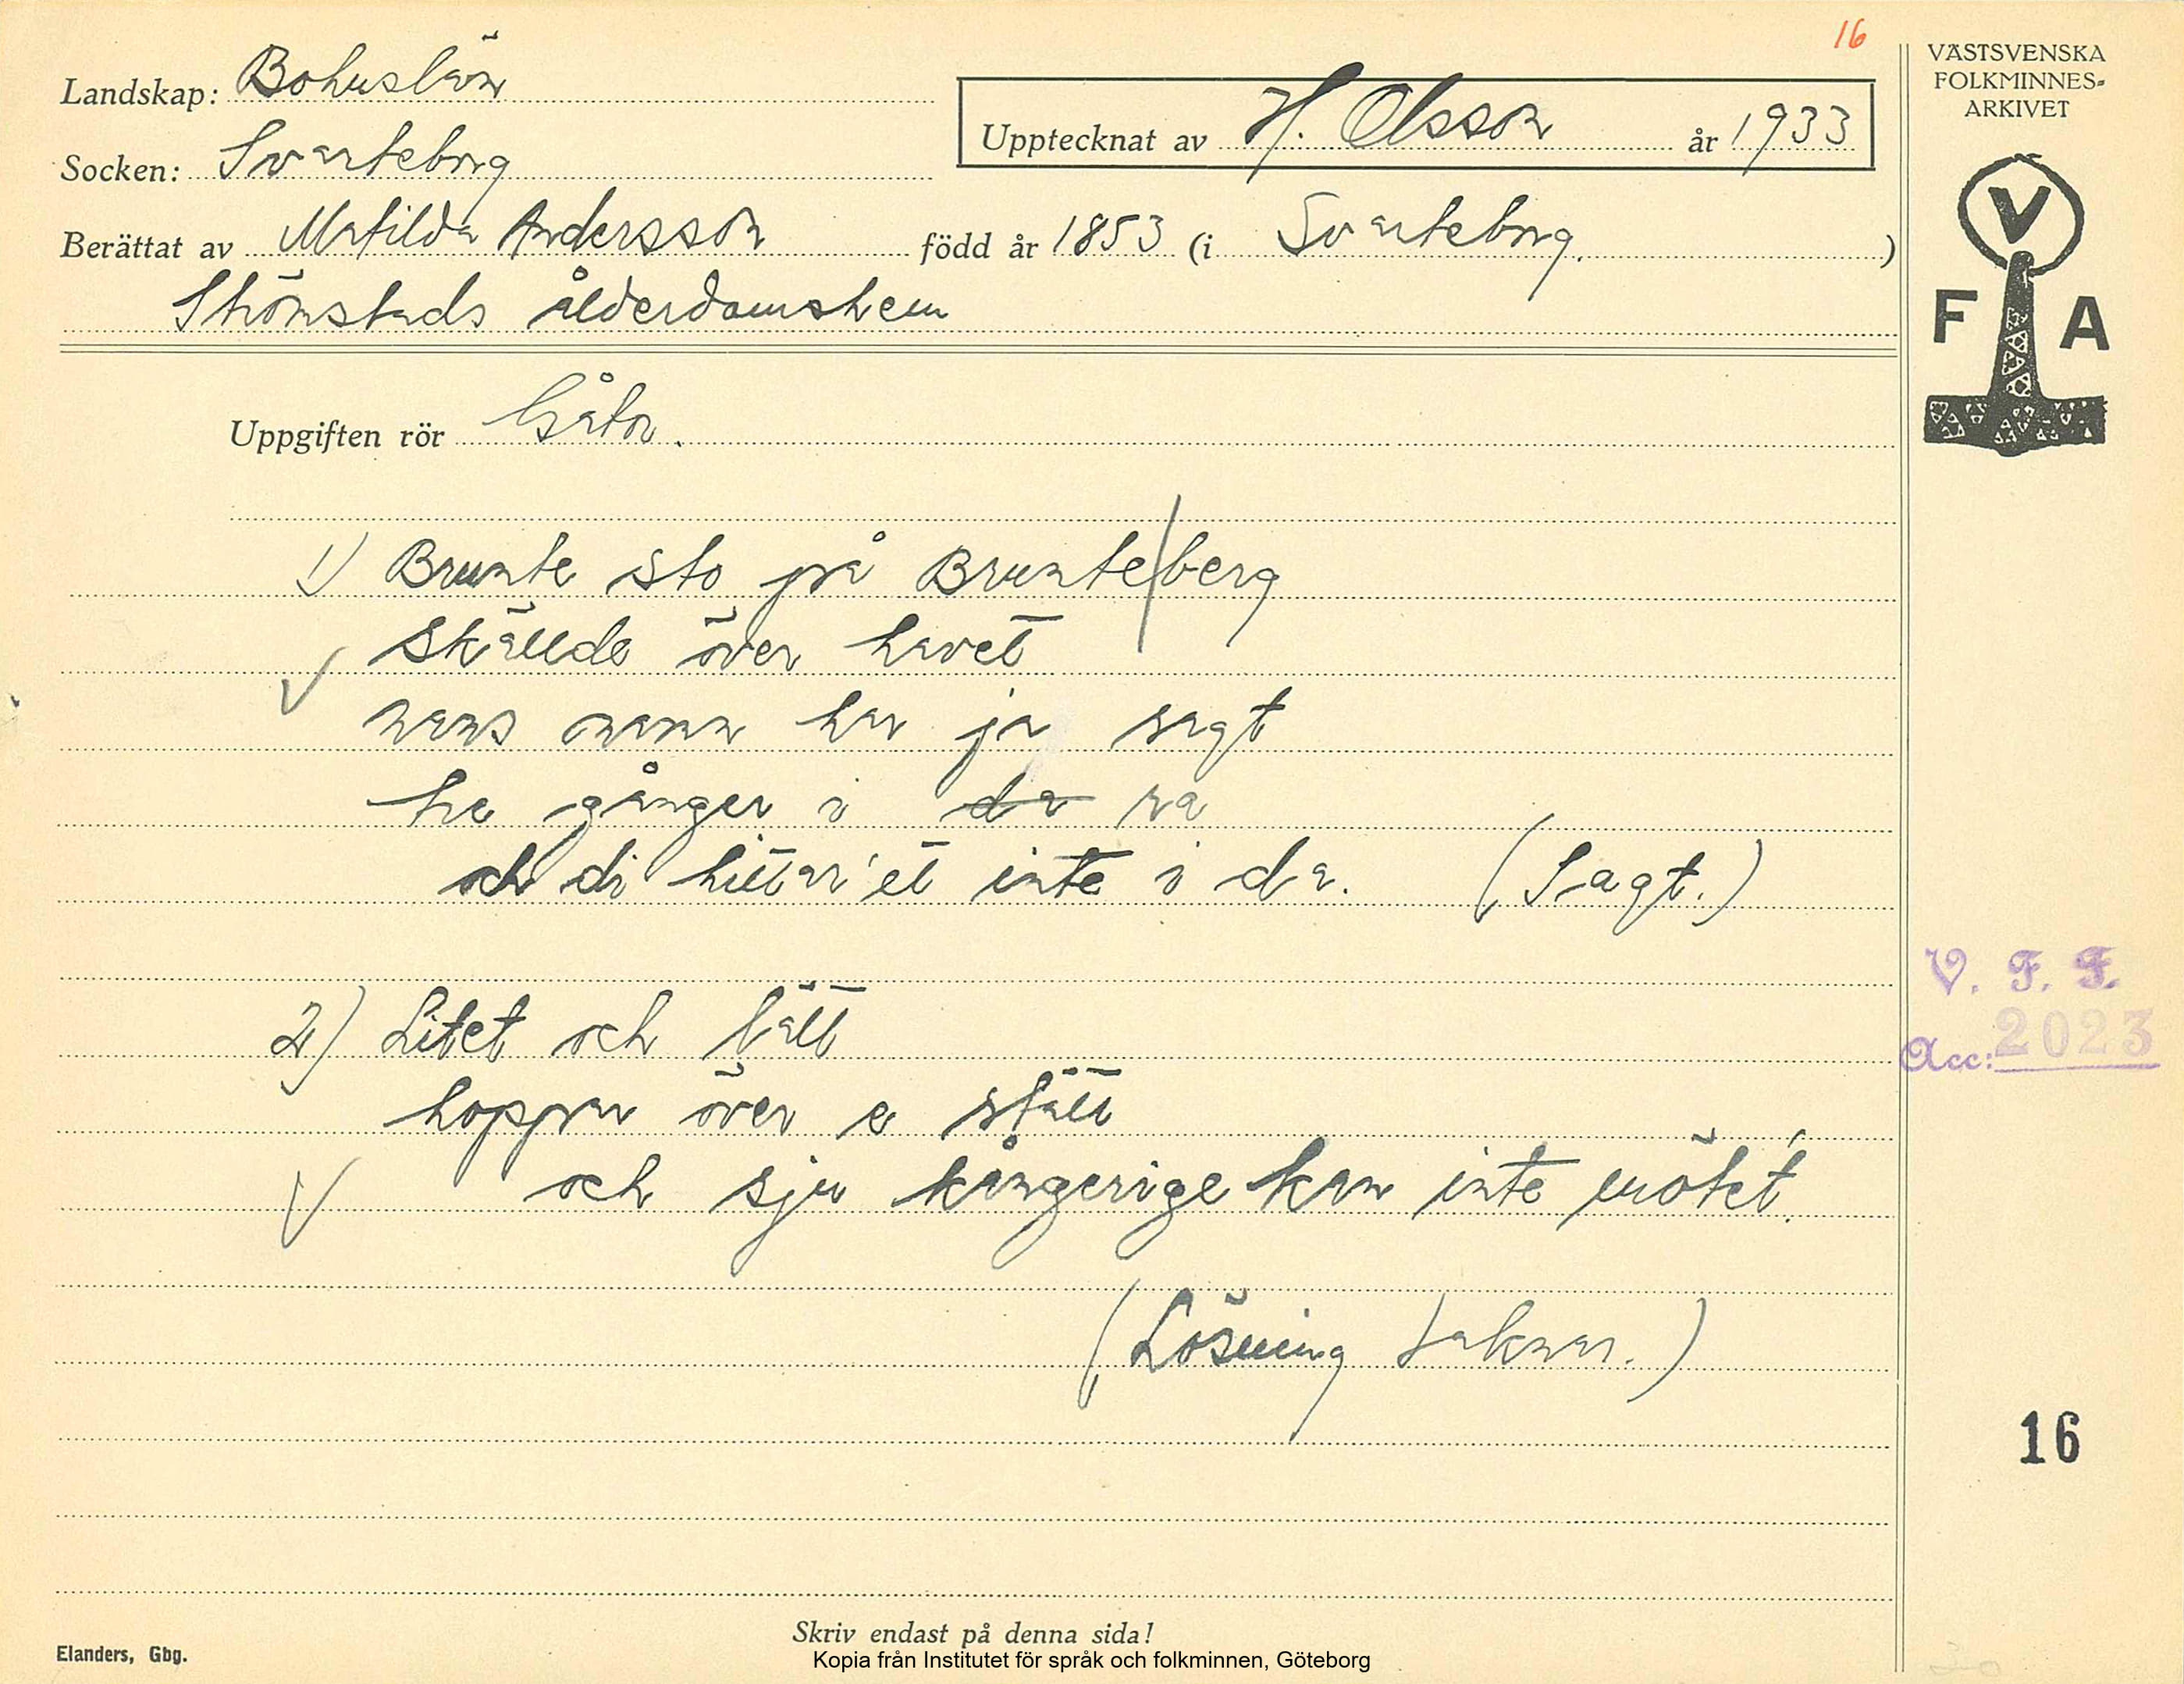 16
Landskap: Bohuslän
Socken: Svarteborg
Upptecknat av H. Olsson år 1933
Berättat av Matilda Andersson född år 1853 (i Svarteborg.)
Strömstads ålderdomshem
VÄSTSVENSKA
FOLKMINNES-
ARKIVET
V
F A
Uppgiften rör Gåtor.
1) Brunte sto på Brunteberg
skällde över havet
nans namn har ja sagt
tre gånger i da ra
och di hittar'et inte i da. (Sagt.)
2) Litet och lätt
hoppar över e slätt
och sju kångerige kan inte mötet.
(Lösning saknas.)
V. F. F.
Acc: 2023
16
Skriv endast på denna sida!
Elanders, Gbg.
Kopia från Institutet för språk och folkminnen, Göteborg